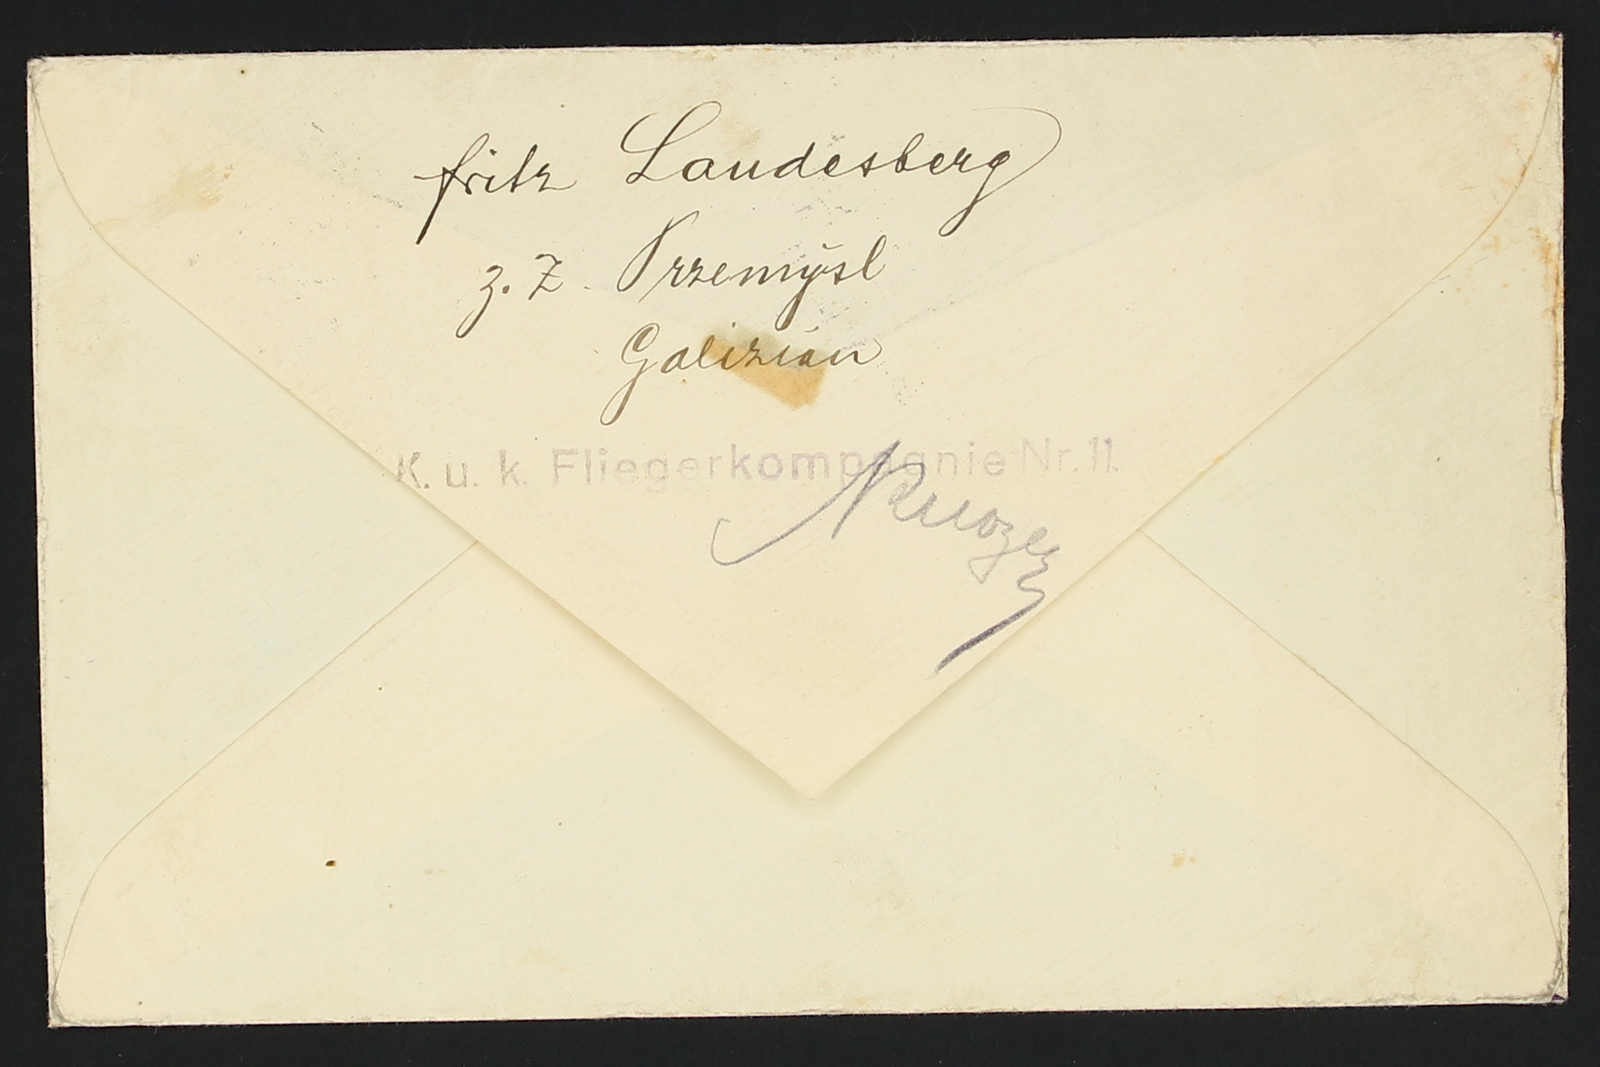 Fritz Landesberg
z. Z. Przemyśl
Galizien
K. u. k. Fliegerkompagnie Nr. 11.